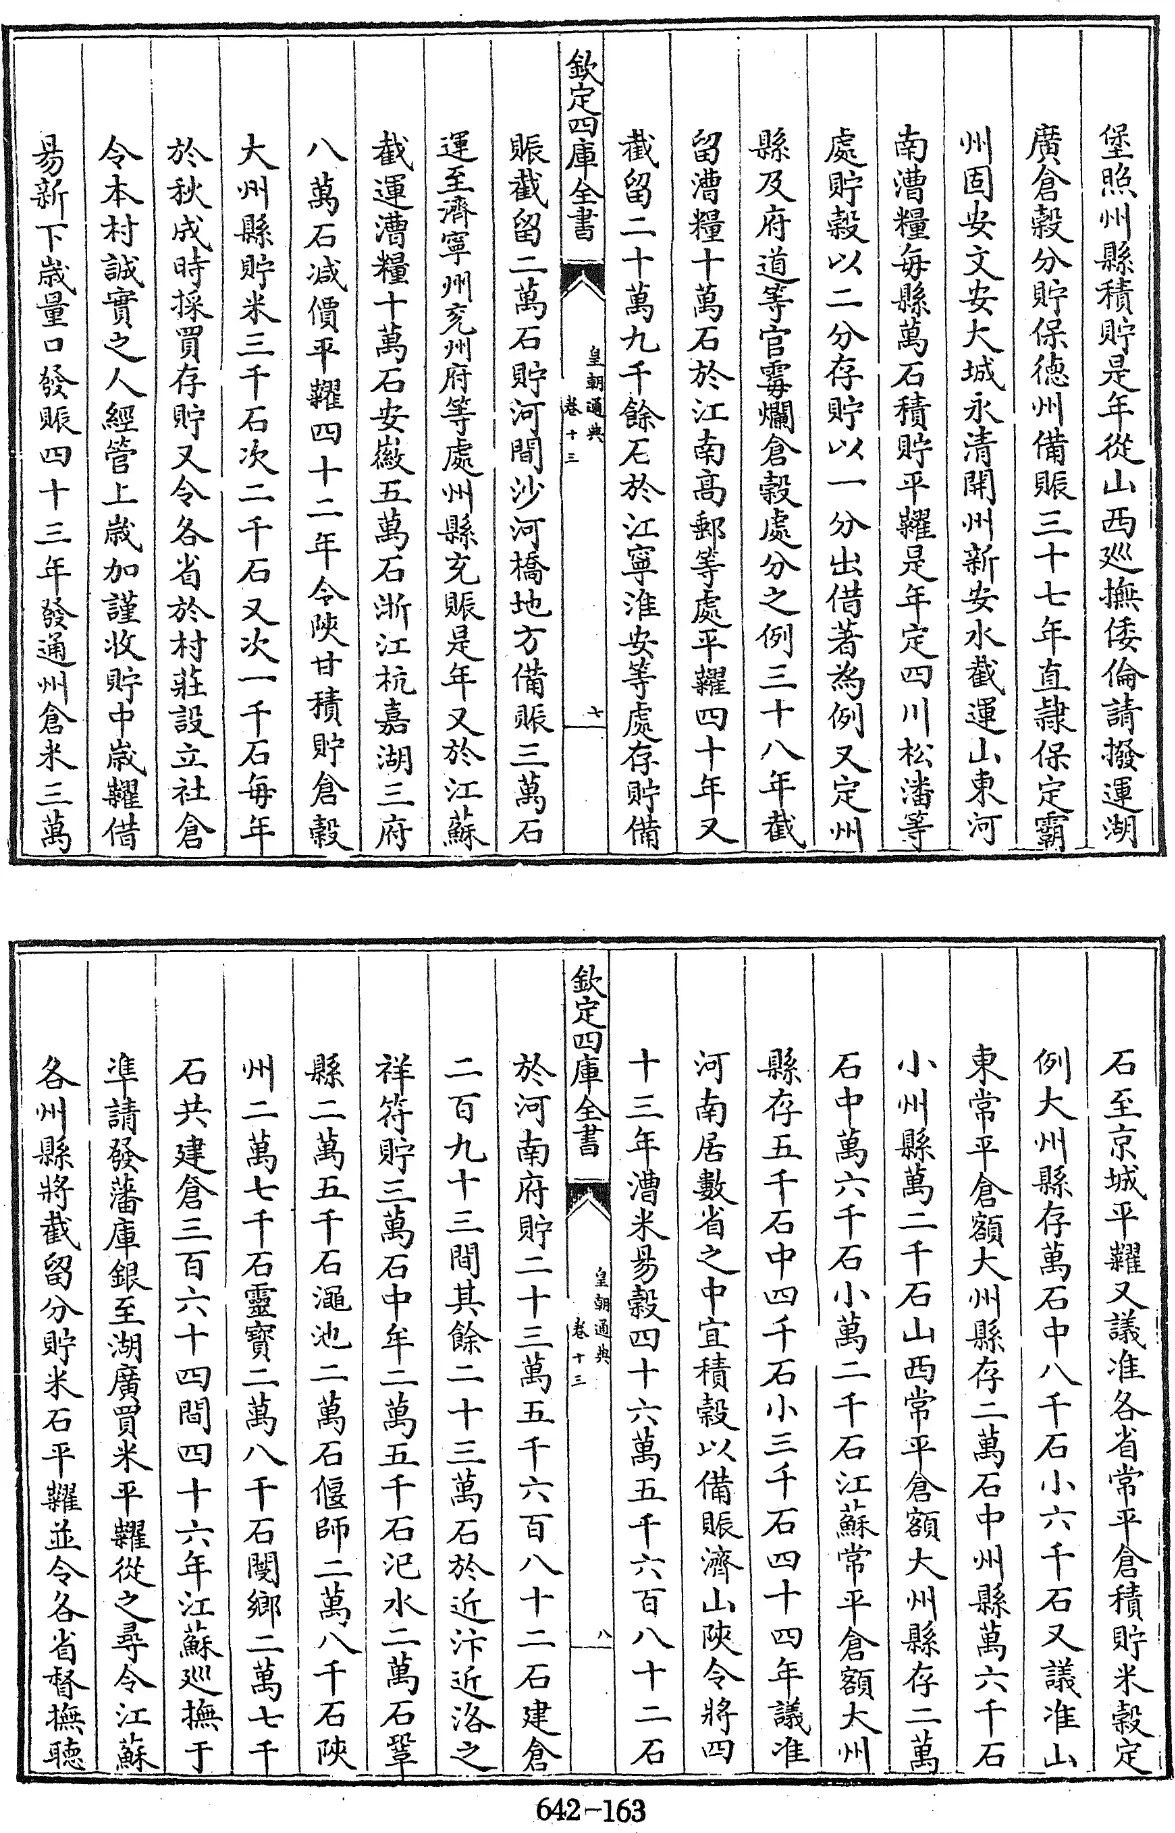 堡照州縣積貯是年從山西廵撫倭倫請撥運湖
廣倉穀分貯保德州備賑三十七年直隷保定霸
州固安文安大城永清開州新安水截運山東河
南漕糧每縣萬石積貯平糶是年定四川松潘等
處貯穀以二分存貯以一分出借著為例又定州
縣及府道等官霉爛倉穀處分之例三十八年截
留漕糧十萬石於江南高郵等處平糶四十年又
截留二十萬九千餘石於江寧淮安等處存貯備
欽定四庫全書
皇朝通典
卷十三
七
賑截留二萬石貯河間沙河橋地方備賑三萬石
運至濟寧州兖州府等處州縣充賑是年又於江蘇
截運漕糧十萬石安徽五萬石浙江杭嘉湖三府
八萬石减價平糶四十二年令陜甘積貯倉穀
大州縣貯米三千石次二千石又次一千石每年
於秋成時採買存貯又令各省於村莊設立社倉
令本村誠實之人經管上嵗加謹收貯中嵗糶借
易新下嵗量口發賑四十三年發通州倉米三萬
石至京城平糶又議准各省常平倉積貯米穀定
例大州縣存萬石中八千石小六千石又議准山
東常平倉額大州縣存二萬石中州縣萬六千石
小州縣萬二千石山西常平倉額大州縣存二萬
石中萬六千石小萬二千石江蘇常平倉額大州
縣存五千石中四千石小三千石四十四年議准
河南居數省之中宜積穀以備賑濟山陜令將四
十三年漕米易穀四十六萬五千六百八十二石
欽定四庫全書
皇朝通典
卷十三
八
於河南府貯二十三萬五千六百八十二石建倉
二百九十三間其餘二十三萬石於近汴近洛之
祥符貯三萬石中牟二萬五千石汜水二萬石鞏
縣二萬五千石澠池二萬石偃師二萬八千石陜
州二萬七千石靈寳二萬八千石閿鄉二萬七千
石共建倉三百六十四間四十六年江蘇廵撫于
準請發藩庫銀至湖廣買米平糶從之尋令江蘇
各州縣將截留分貯米石平糶並令各省督撫聽
642-163